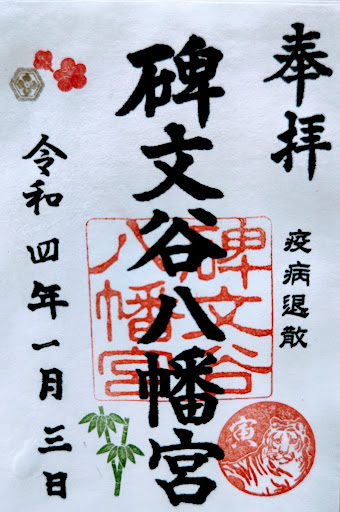 奉拝
疫病退散
碑文谷八幡宮
碑文谷
八幡宮
寅
令和四年一月三日